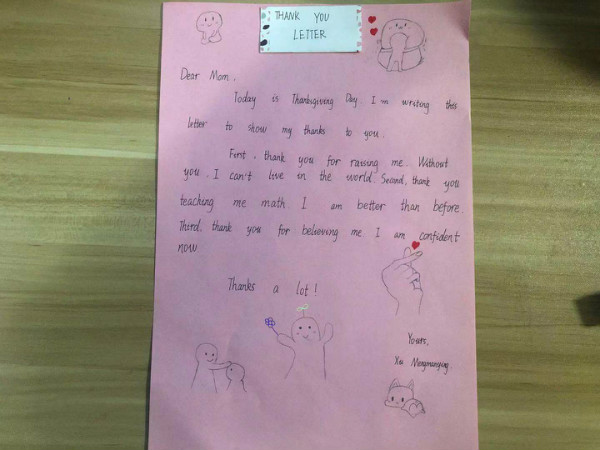 THANK YOU
LETTER
Dear Mom,
Today is Thanksgiving Day. I am writing this
letter to show my thanks to you.
First, thank you for raising me. Without
you, I can't live in the world. Second, thank you
teaching me math. I am better than before.
Third, thank you for believing me. I am confident
now.
Thanks a lot!
Yours,